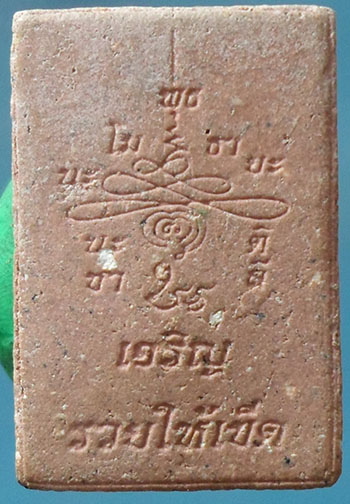 พุธ
โม ธา
นะ ยะ
นะ ติ
ชา
เจริญ
รวยให้เข็ด